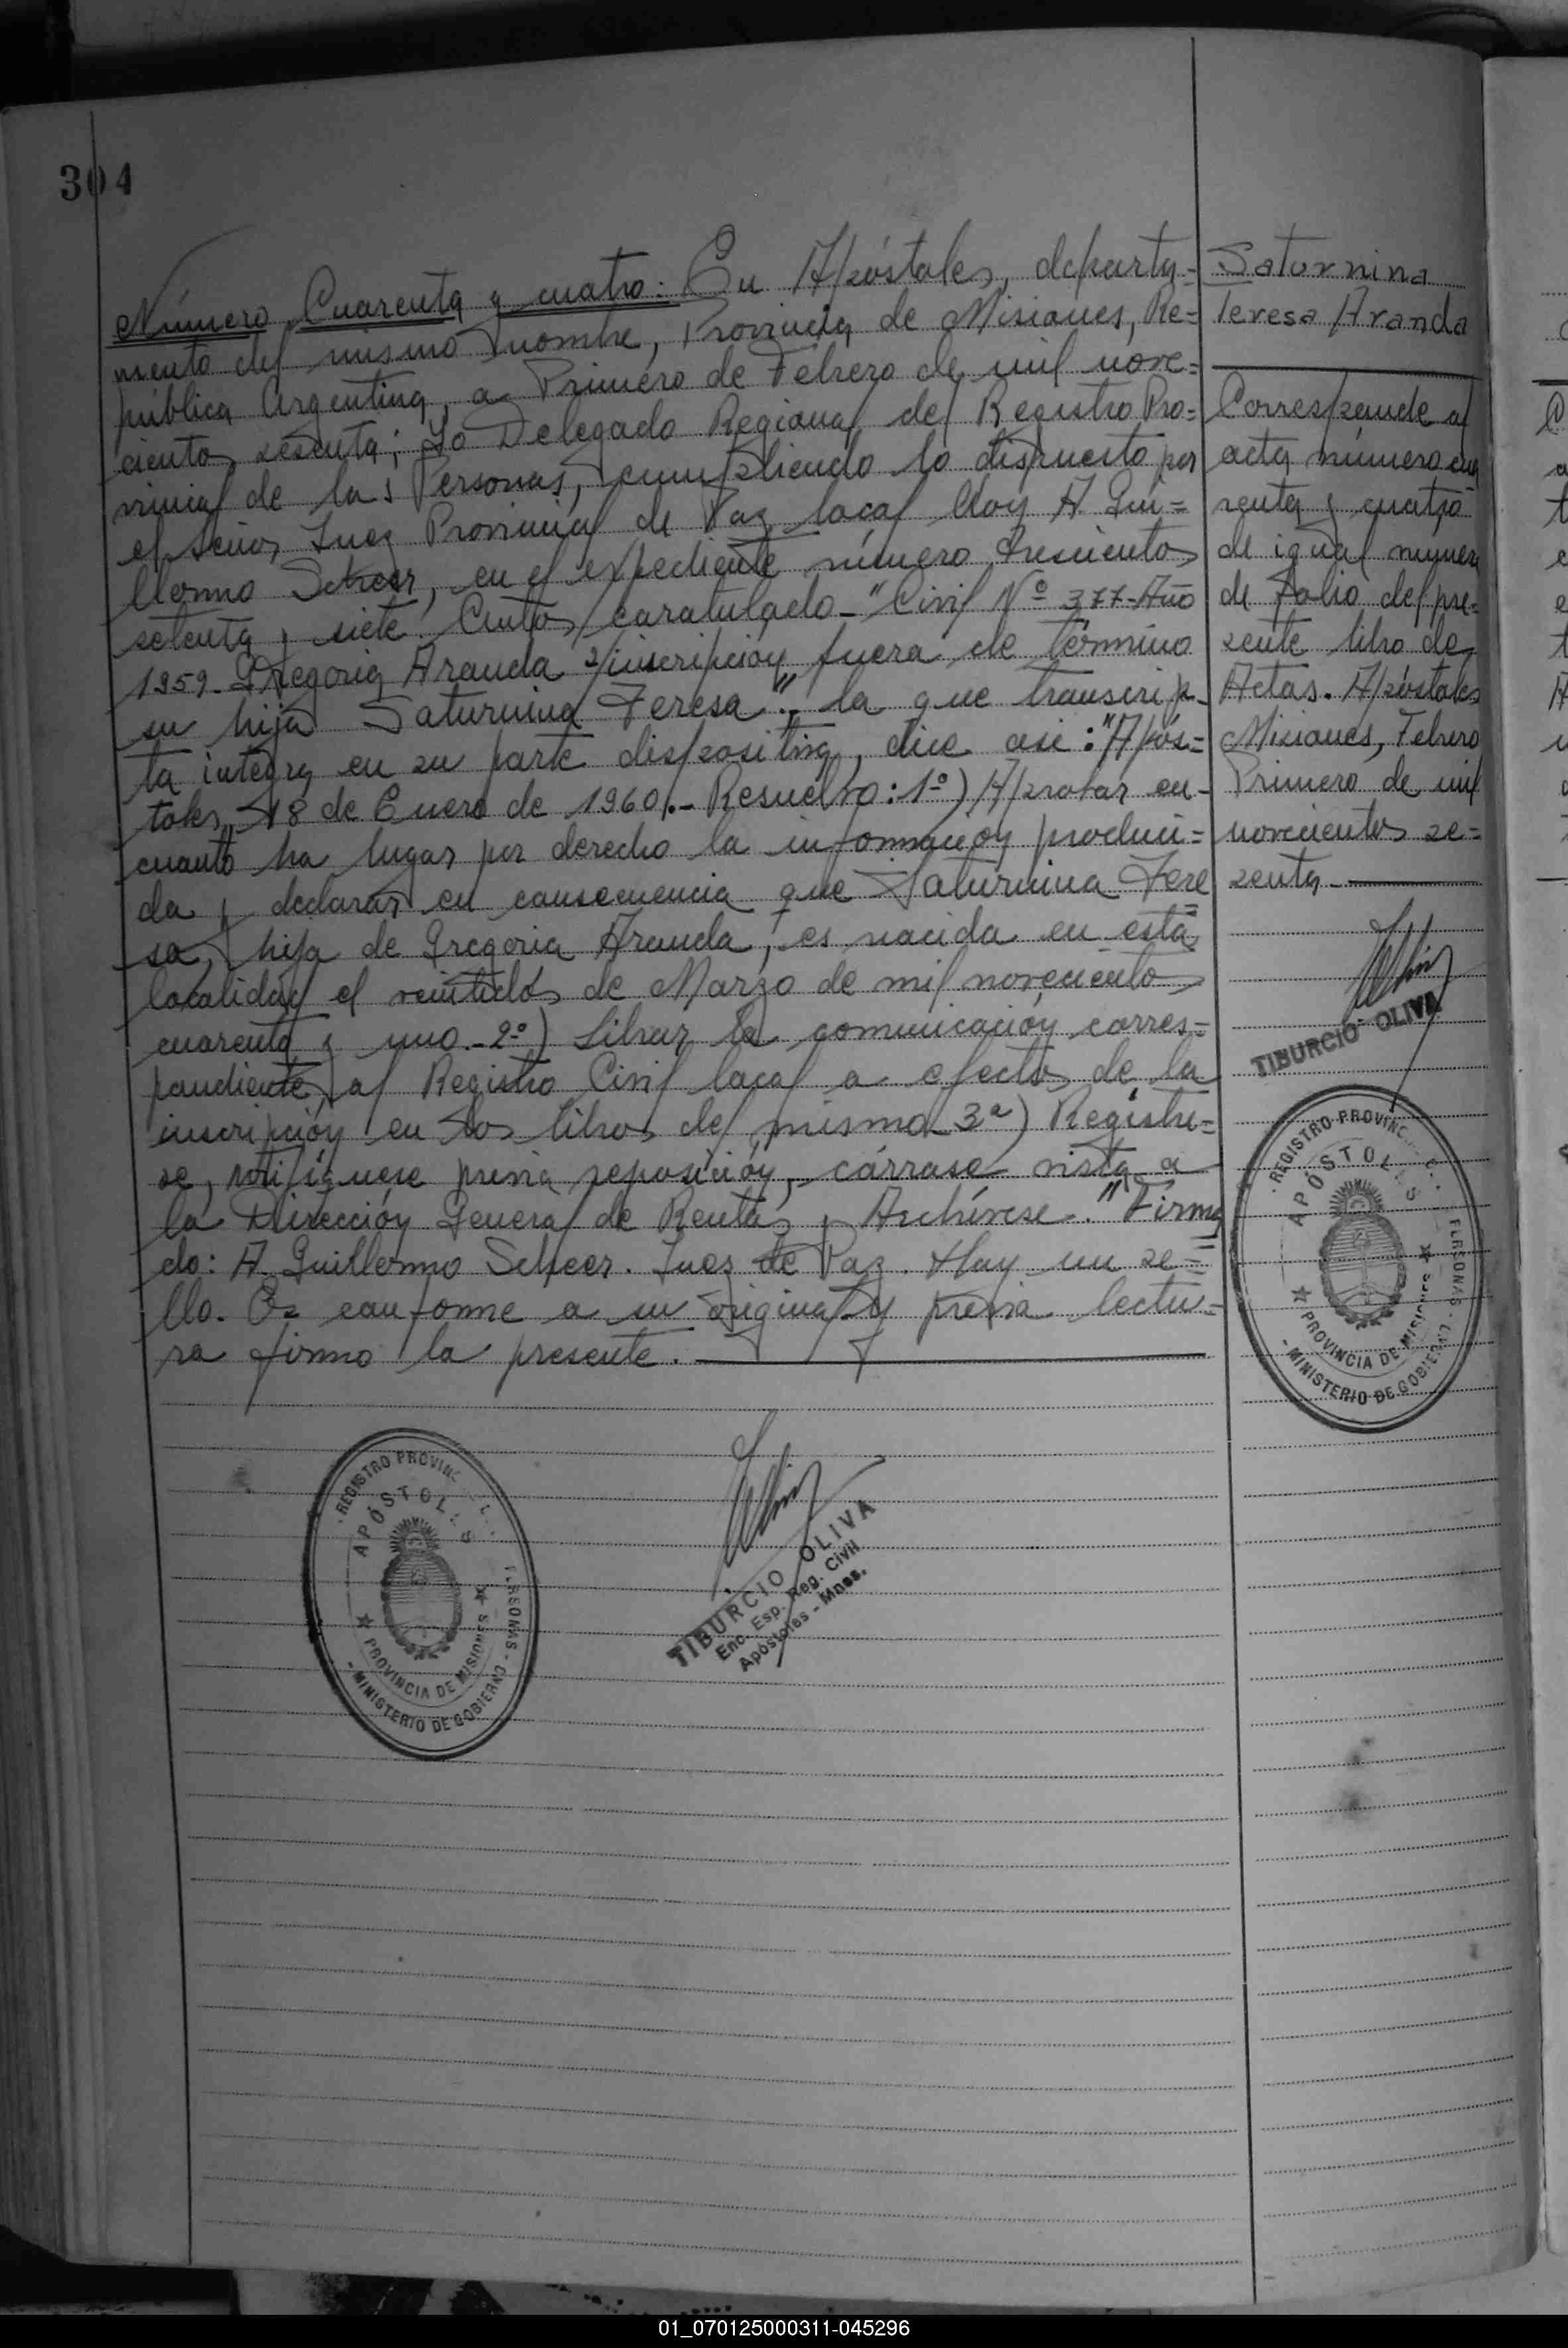 304
Número Cuarenta y cuatro: En Apóstoles, departa=
mento del mismo nombre, Provincia de Misiones, Re=
pública Argentina, a Primero de Febrero de mil nove=
cientos sesenta; Yo Delegado Regional del Registro Pro=
vincial de las Personas, cumpliendo lo dispuesto por
el señor Juez Provincial de Paz local Don A. Gui=
llermo Scheer, en el expediente número trescientos
setenta y siete. Autos caratulado-"Civil Nº 377-Año
1959-Gregoria Aranda s/inscripción fuera de término
su hija Saturnina Teresa".- la que transcrip-
ta integra en su parte dispositiva, dice asi: "Após=
toles, 18 de Enero de 1960.- Resuelvo: 1º) Aprobar en-
cuanto ha lugar por derecho la información produci=
da y declarar en consecuencia que Saturnina Tere=
sa, hija de Gregoria Aranda, es nacida en esta
localidad el veintidós de Marzo de mil novecientos
cuarenta y uno.-2º) Librar la comunicación corres=
pondiente, al Registro Civil local a efectos de la
inscripción en los libros del mismo-3º) Regístre=
se, notifíquese previa reposición, córrase vista a
la Dirección General de Rentas y Archívese." Firma=
do: A. Guillermo Scheer. Juez de Paz. Hay un se=
llo. Es conforme a su original y previa lectu=
ra firmo la presente.
Saturnina
Teresa Aranda
Corresponde al
acta número cua
renta y cuatro
de igual número
de Folio del pre=
sente libro de
Actas. Apóstoles
Misiones, Febrero
Primero de mil
novecientos se=
senta
TIBURCIO OLIVA
REGISTRO PROVINCIAL PERSONAS
APÓSTOLES
PROVINCIA DE MISIONES
- MINISTERIO DE GOBIERNO -
REGISTRO PROVINCIAL PERSONAS
APÓSTOLES
PROVINCIA DE MISIONES
- MINISTERIO DE GOBIERNO -
TIBURCIO OLIVA
Enc. Esp. Reg. Civil
Apóstoles - Mnes.
01_070125000311-045296